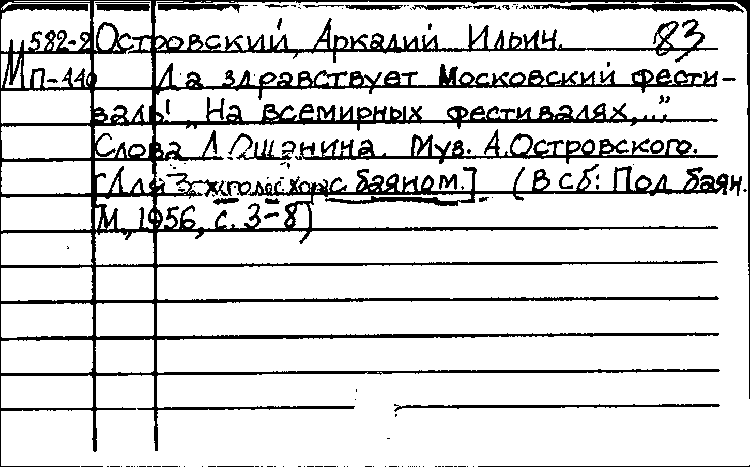 М 582-2 Островский, Аркадий Ильич. 83
П-440 Да здравствует Московский фести-
валь! „На всемирных фестивалях,..."
Слова Л. Ошанина. Муз. А. Островского.
[Для 3хжголос. хора с баяном.] (В сб: Под баян.
М., 1956, с. 3-8)